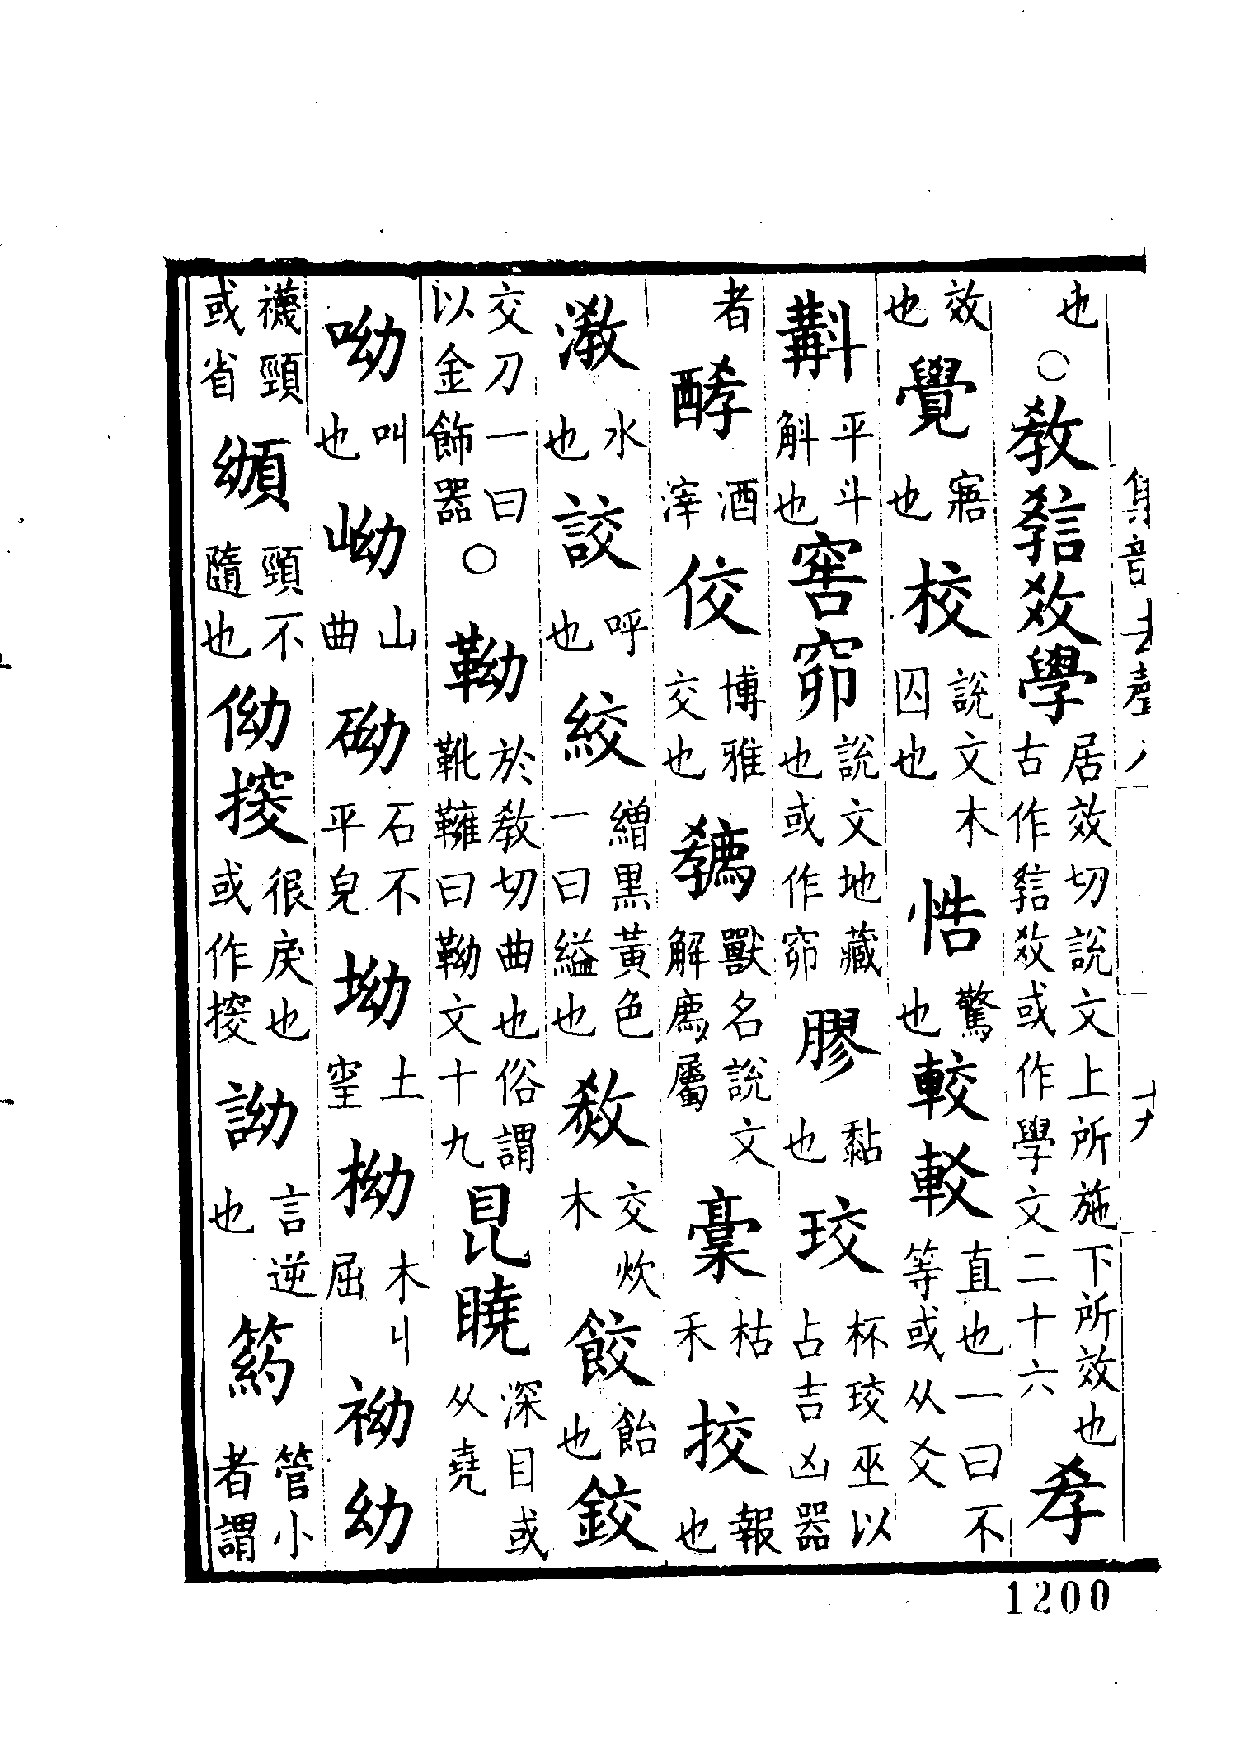 也○教𤕝效學居效切說文上所施下所效也古作𤕝效或作學文二十六孝
效也覺寤也校說文木囚也悎驚也較䡈直也一曰不等或从爻
斠平斗斛也窖窌說文地藏也或作窌膠黏也珓杯珓巫以占吉凶器
者酵酒滓佼博雅交也獢獸名說文解廌屬槀枯禾挍報也
滧水也詨呼也絞繒黑黃色一曰縊也敎交炊木餃飴也鉸
交刀一曰以金飾器○靿於教切曲也俗謂靴鞾曰靿文十九㫐曉深目或从堯
呦叫也岰山曲㘭石不平皃坳土窐柪木屈袎幼
襪頸或省䫜頸不隨也㑃㨱很戾也或作㨱詏言逆也箹管小者謂
集音去聲八
1200